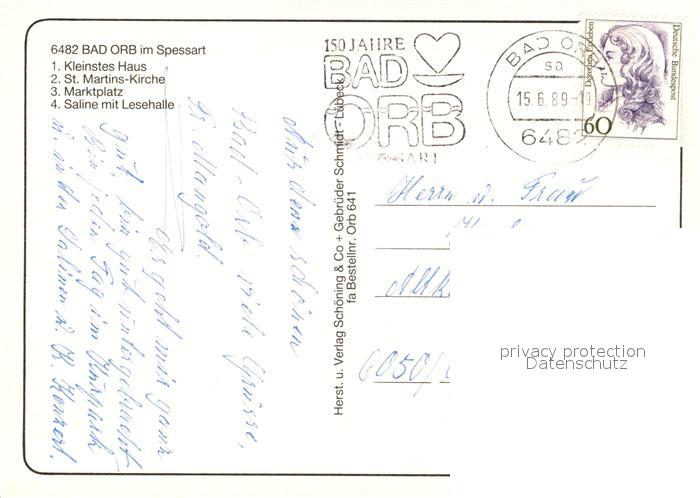 6482 BAD ORB im Spessart
1. Kleinstes Haus
2. St. Martins-Kirche
3. Marktplatz
4. Saline mit Lesehalle
150 JAHRE
BAD
ORB
BAD O
sa
15.6.89-1
648
Dorothea Erxleben
Deutsche Bundespost
60
Herst. u. Verlag Schöning & Co + Gebrüder Schmidt - Lübeck
fa Bestellnr. Orb 641
Aus dem schönen
Bad-Orb viele Grüsse,
Fr. Mangold.
Es geht mir ganz
gut bin gut untergebracht
Bin jeden Tag im Kurpark
u. in den Salinen u. K. Konzert.
Herrn u. Frau
6050/
privacy protection
Datenschutz